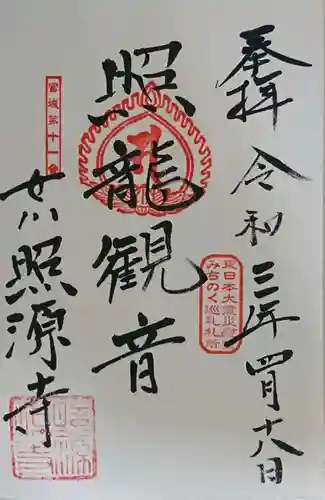 奉拝
令和三年四月十八日
照龍観音
女川照源寺
宮城第十一番
東日本大震災
みちのく巡礼札所